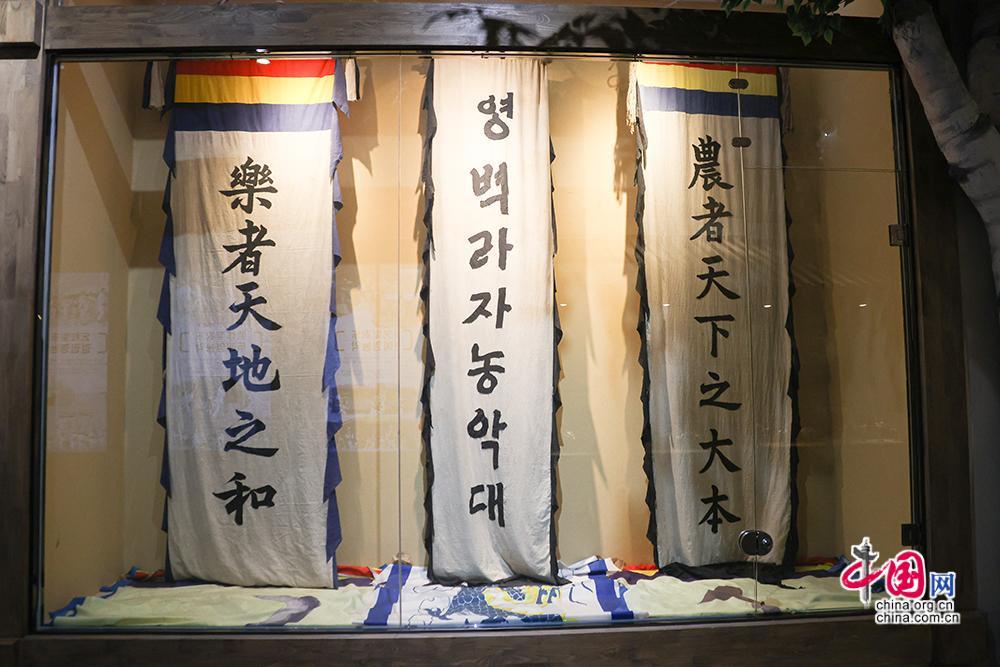 樂者天地之和
영벽라자농악대
農者天下之大本
中国网
china.org.cn
china.com.cn